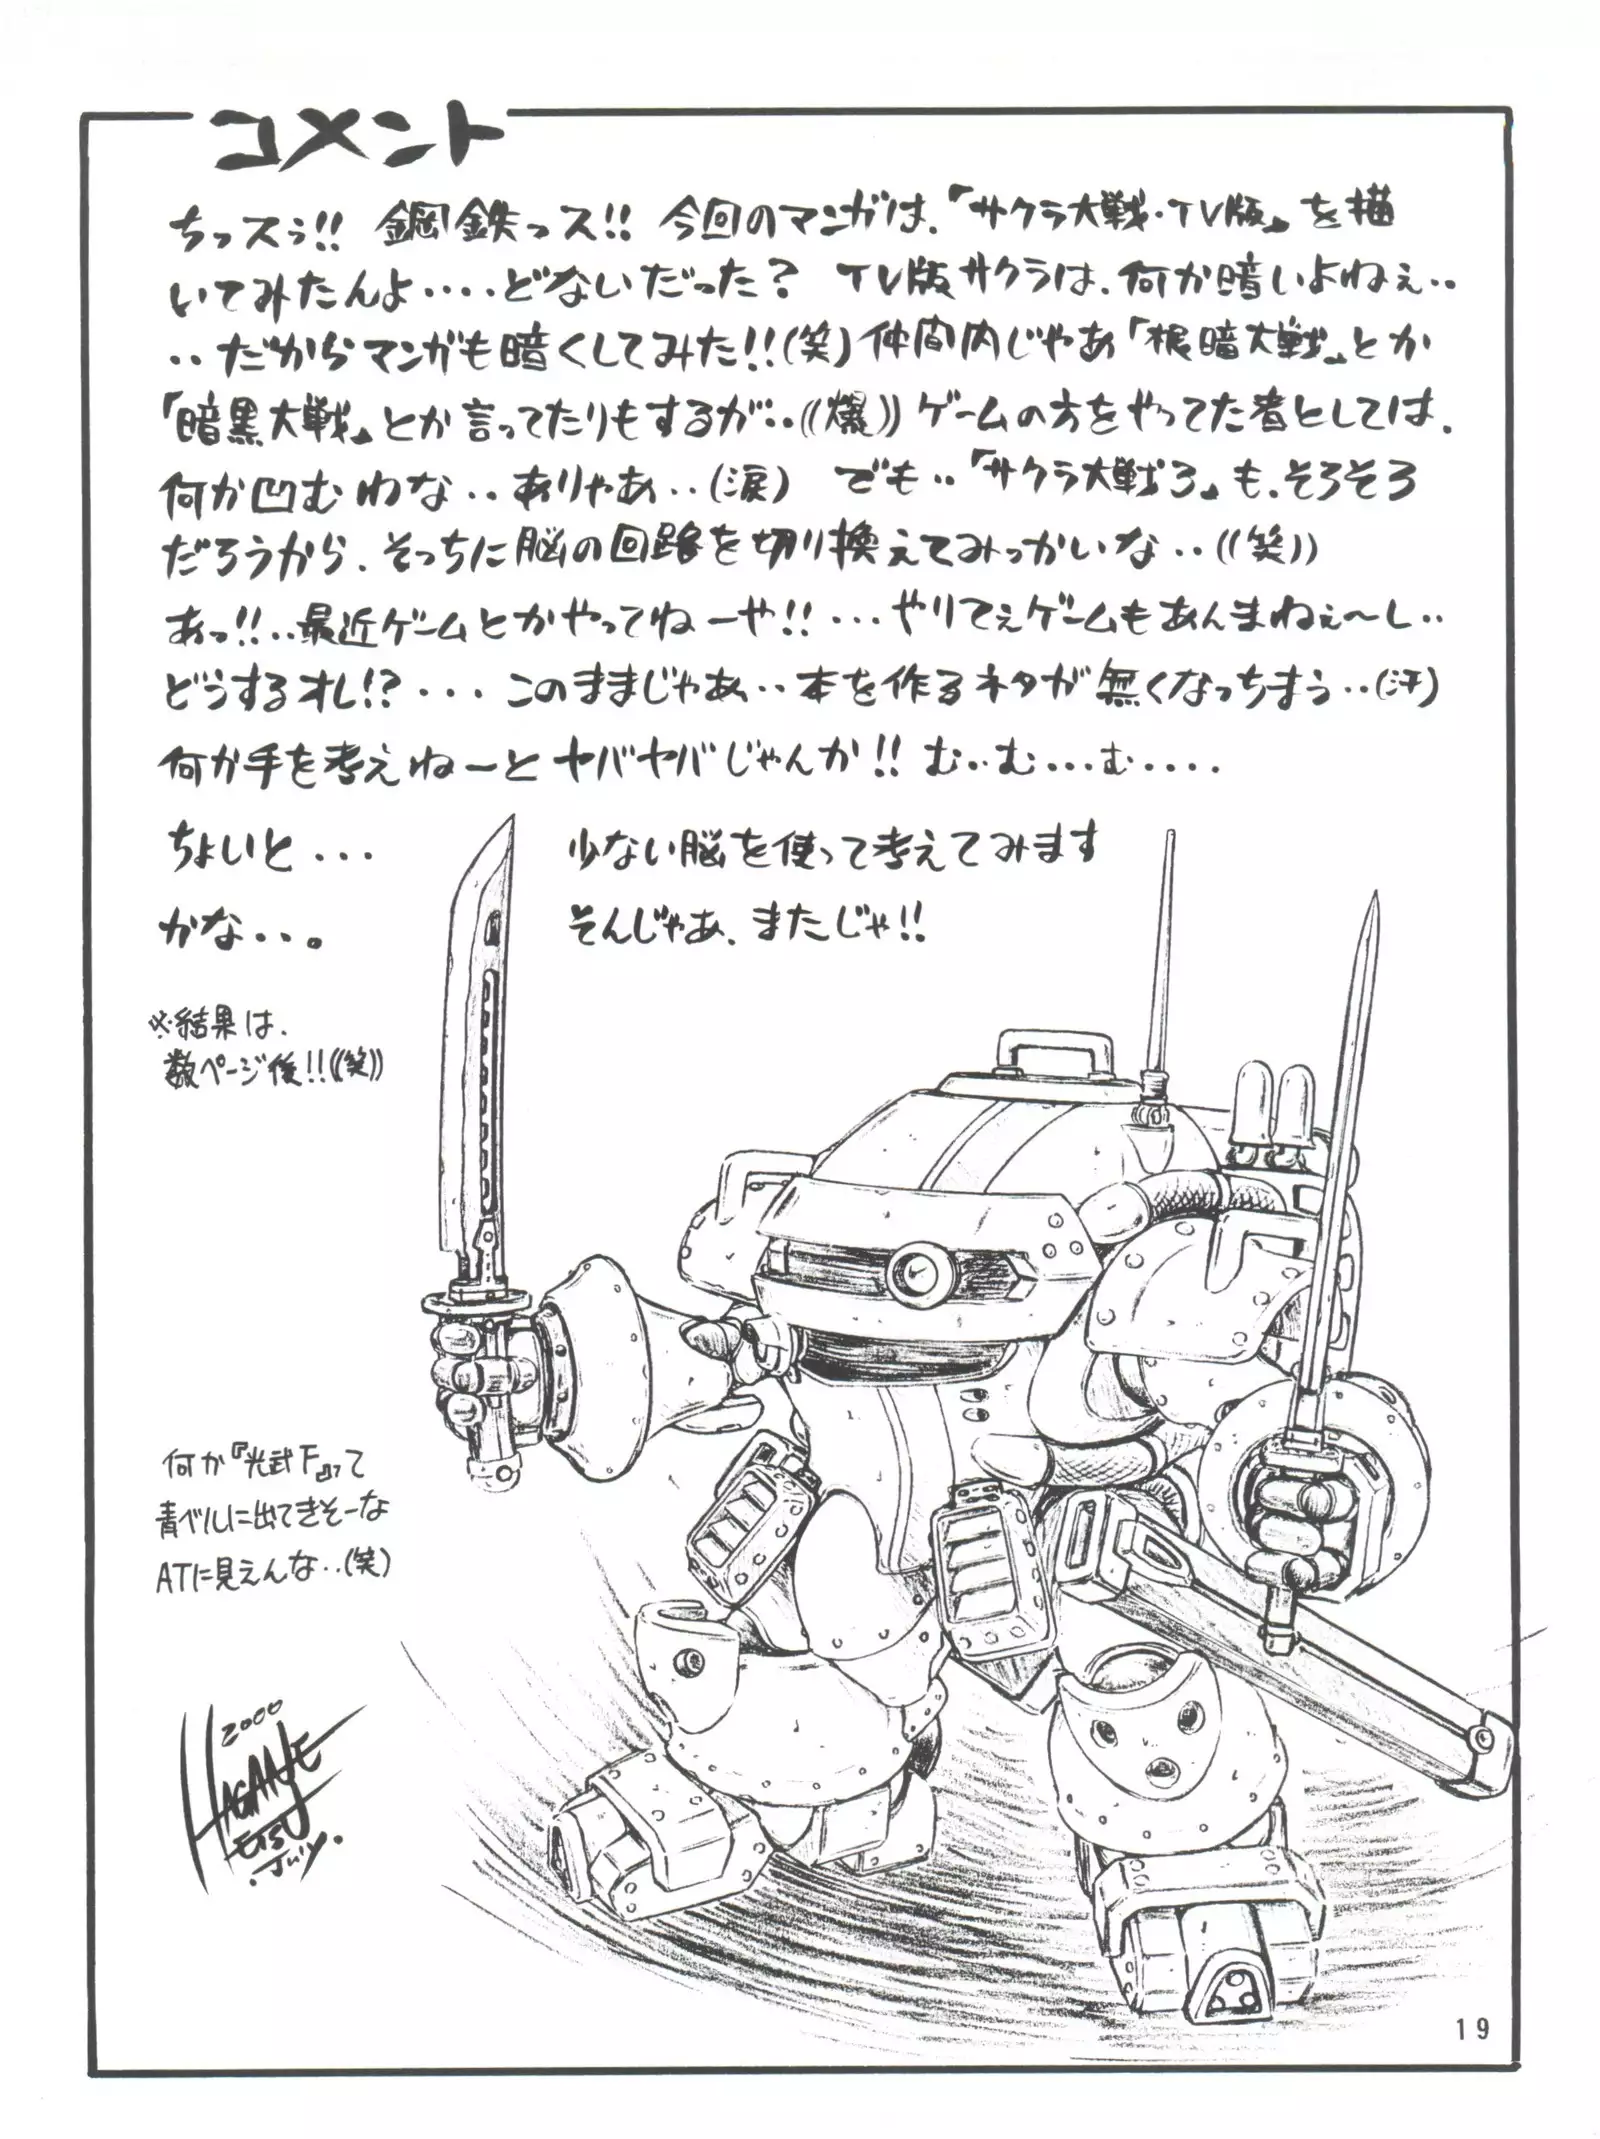 コメント
ちっスぅ!! 鋼鉄っス!! 今回のマンガは、「サクラ大戦・TV版」を描
いてみたんよ‥‥どないだった? TV版サクラは、何か暗いよねぇ‥
‥だからマンガも暗くしてみた!!(笑)仲間内じゃあ「根暗大戦」とか
「暗黒大戦」とか言ってたりもするが‥((爆))ゲームの方をやってた者としては、
何か凹むわな‥ありゃあ‥(涙) でも‥「サクラ大戦3」も、そろそろ
だろうから、そっちに脳の回路を切り換えてみっかいな‥((笑))
あっ!!‥最近ゲームとかやってねーや!!・・・やりてぇゲームもあんまねぇ〜し‥
どうするオレ!?・・・このままじゃあ‥本を作るネタが無くなっちまう‥(汗)
何か手を考えねーとヤバヤバじゃんか!! む‥む・・・む・・・・
ちょいと・・・ 少ない脳を使って考えてみます
かな‥。 そんじゃあ、またじゃ!!
※結果は、
数ページ後!!((笑))
何か『光武F』って
青ベルに出てきそーな
ATに見えんな‥(笑)
2000
HAGANE
ETSU
.July.
19